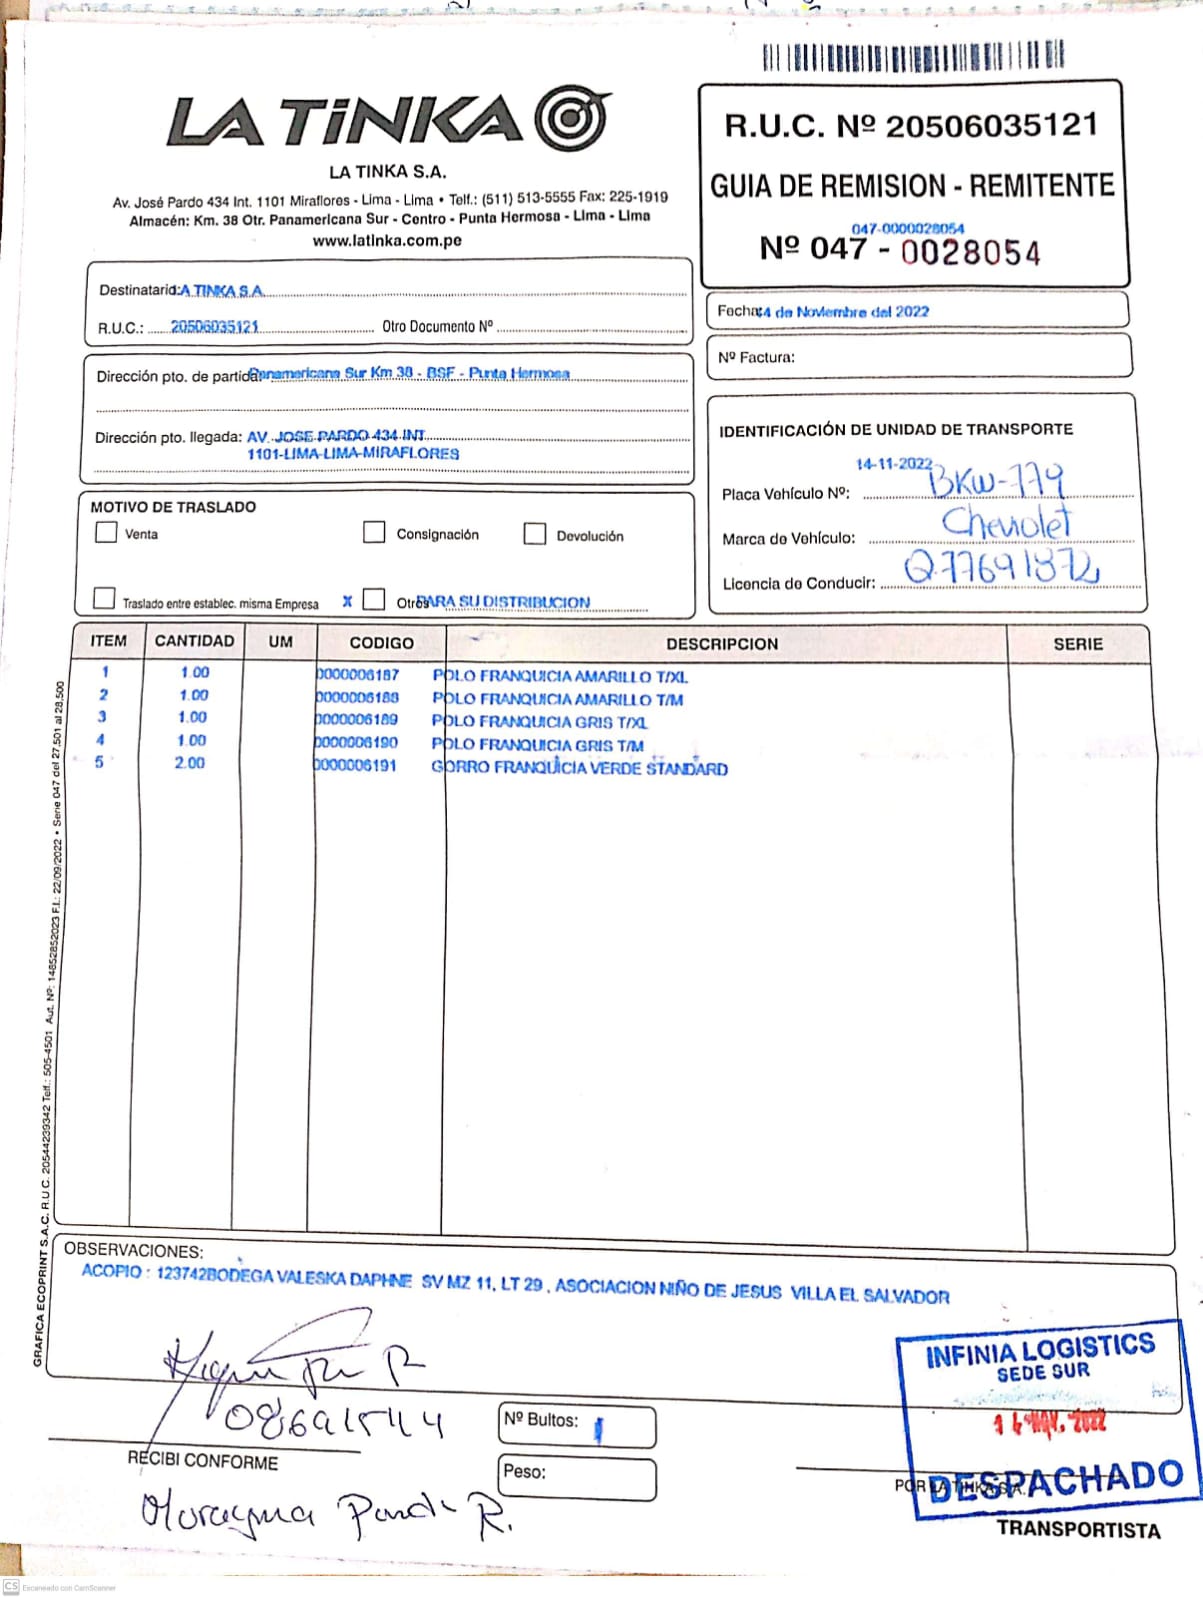 LA TiNKA
LA TINKA S.A.
Av. José Pardo 434 Int. 1101 Miraflores - Lima - Lima • Telf.: (511) 513-5555 Fax: 225-1919
Almacén: Km. 38 Otr. Panamericana Sur - Centro - Punta Hermosa - Lima - Lima
www.latinka.com.pe
R.U.C. Nº 20506035121
GUIA DE REMISION - REMITENTE
047-0000028054
Nº 047 - 0028054
Destinatario: A TINKA S.A.
R.U.C.: 20506035121 Otro Documento Nº
Fecha: 14 de Noviembre del 2022
Nº Factura:
Dirección pto. de partida: Panamericana Sur Km 38 - BSF - Punta Hermosa
Dirección pto. llegada: AV. JOSE PARDO 434 INT
1101-LIMA-LIMA-MIRAFLORES
IDENTIFICACIÓN DE UNIDAD DE TRANSPORTE
14-11-2022
Placa Vehículo Nº: BKW-779
Marca de Vehículo: Chevrolet
Licencia de Conducir: Q77691872
MOTIVO DE TRASLADO
Venta Consignación Devolución
Traslado entre establec. misma Empresa X Otros PARA SU DISTRIBUCION
ITEM CANTIDAD UM CODIGO DESCRIPCION SERIE
1 1.00 0000006187 POLO FRANQUICIA AMARILLO T/XL
2 1.00 0000006188 POLO FRANQUICIA AMARILLO T/M
3 1.00 0000006189 POLO FRANQUICIA GRIS T/XL
4 1.00 0000006190 POLO FRANQUICIA GRIS T/M
5 2.00 0000006191 GORRO FRANQUICIA VERDE STANDARD
GRAFICA ECOPRINT S.A.C. R.U.C. 20544239342 Telf.: 505-4501 Aut. Nº: 14852852023 F.I.: 22/09/2022 • Serie 047 del 27,501 al 28,500
OBSERVACIONES:
ACOPIO : 123742BODEGA VALESKA DAPHNE SV MZ 11, LT 29 , ASOCIACION NIÑO DE JESUS VILLA EL SALVADOR
08691544
RECIBI CONFORME
R.
Nº Bultos: 1
Peso:
INFINIA LOGISTICS
SEDE SUR
14 NOV. 2022
DESPACHADO
POR LA TINKA S.A.
TRANSPORTISTA
CS Escaneado con CamScanner